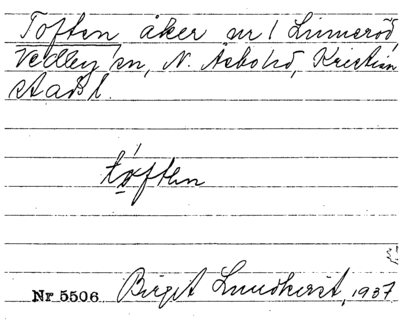 Toften åker nr 1 Linneröd,
Vedby sn, N. Åsbo hd, Kristian
stads l.
töften
Nr 5506 Birgit Lundkvist, 1937